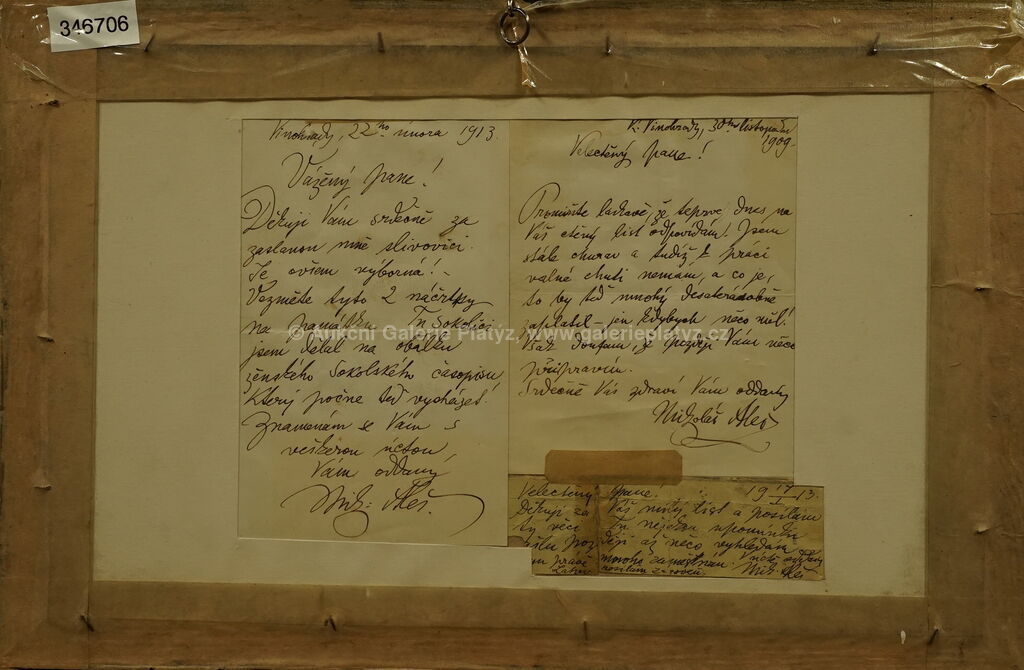 346706
Vinohrady, 22ho února 1913.
Vážený pane!
Děkuji Vám srdečně za
zaslanou mně slivovici.
Je ovšem výborná! –
Vezměte tyto 2 náčrtky
na památku. Tu Sokolici
jsem dělal na obálku
ženského Sokolského časopisu,
který počne teď vycházet!
Znamenám se Vám s
veškerou úctou
Vám oddaný
Mik: Aleš.
K. Vinohrady, 30ho listopadu
1909.
Velectěný pane!
Promiňte laskavě, že teprve dnes na
Váš ctěný list odpovídám! Jsem
stále churav a tudíž k práci
valné chuti nemám, a co je,
to by teď mnohý desateronásobně
zaplatil – jen kdybych něco měl!
Však doufám, že později Vám něco
připravím.
Srdečně Vás zdraví Vám oddaný
Mikoláš Aleš
© Aukční Galerie Platýz, www.galerieplatyz.cz
Velectěný pane! 19 17/I 13.
Děkuji za Váš milý list a posílám
ty věci
něco vyhledám
práce mnoho zaměstnán.
Mik: Aleš